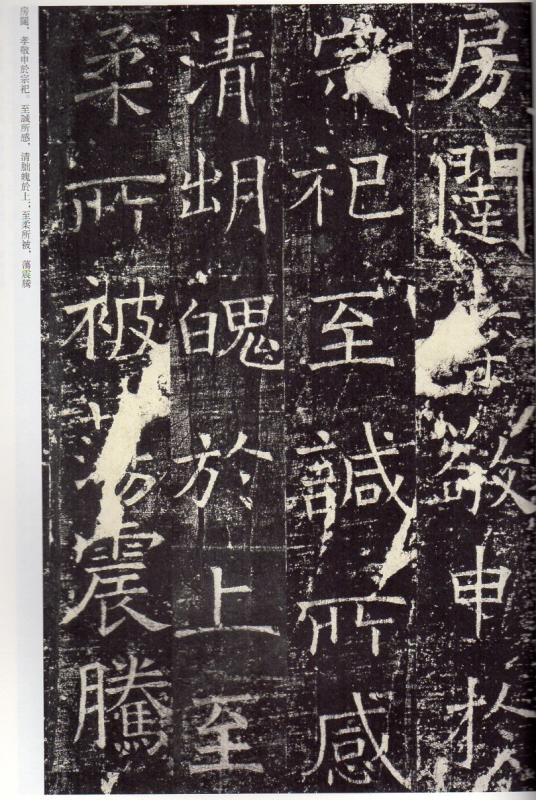 房闥孝敬申於
宗祀至諴所感
清朏魄於上至
柔所被蕩震騰
房闥、孝敬申於宗祀。至誠所感，清朏魄於上；至柔所被，蕩震騰